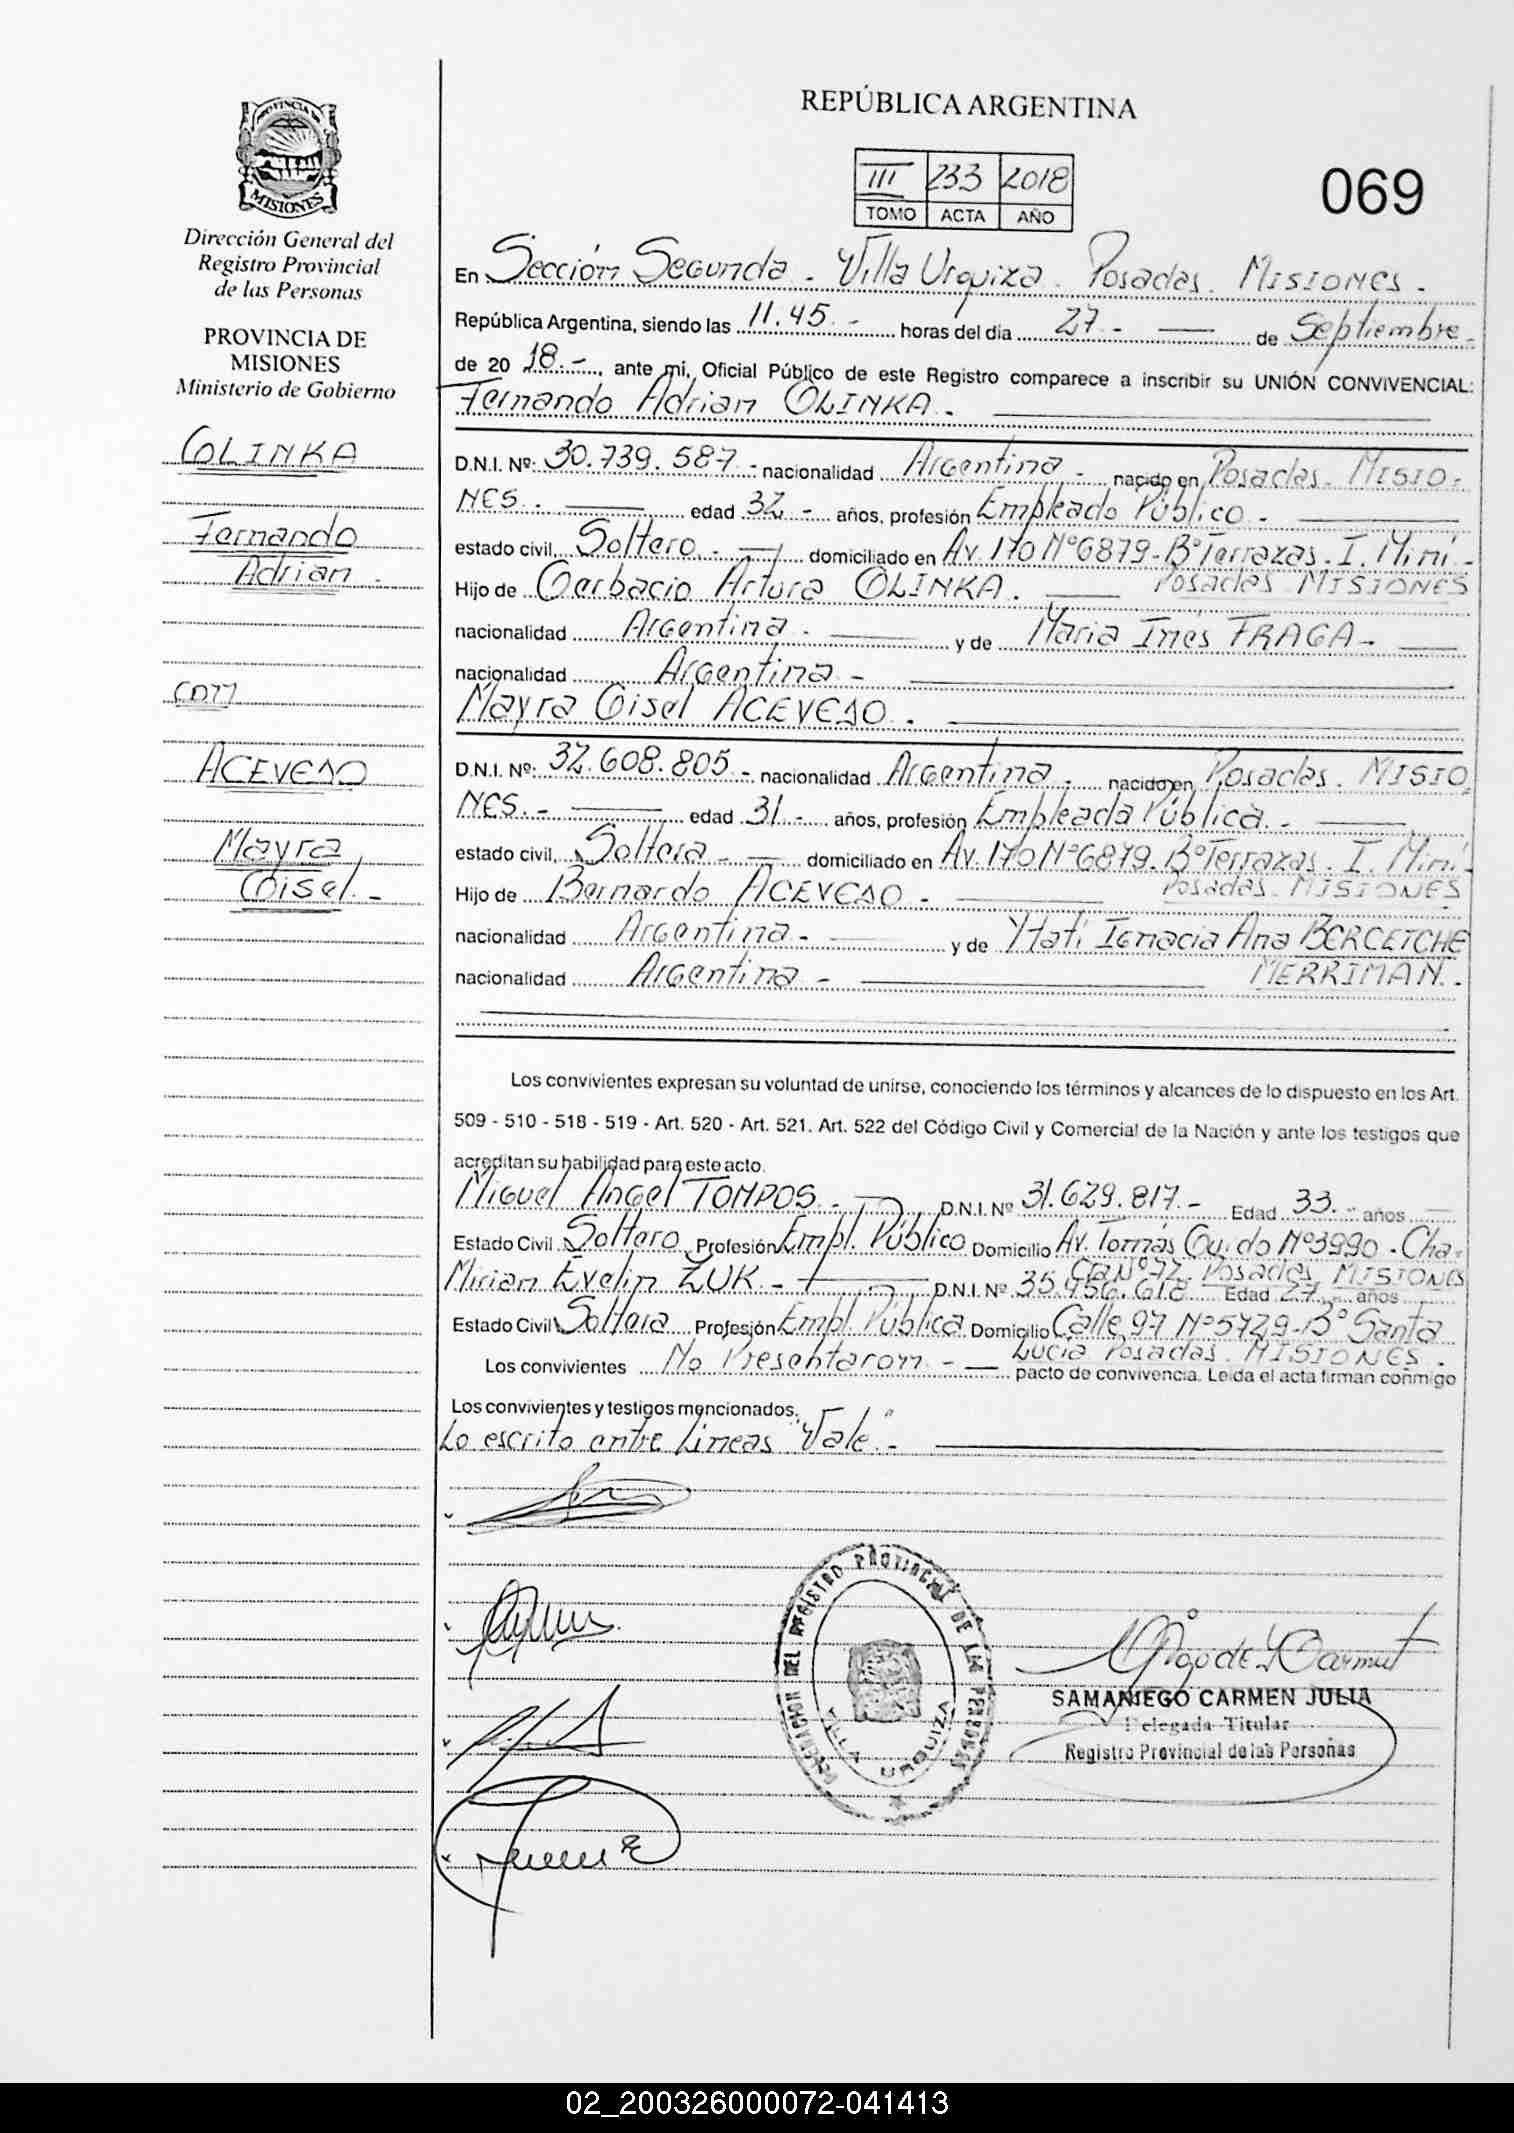 REPÚBLICA ARGENTINA
III 233 2018
TOMO ACTA AÑO
069
PROVINCIA DE
MISIONES
Dirección General del
Registro Provincial
de las Personas
PROVINCIA DE
MISIONES
Ministerio de Gobierno
OLINKA
Fernando
Adrian -
con
ACEVEDO
Mayra
Gisel. -
En Sección Segunda - Villa Urquiza. Posadas. MISIONES.
República Argentina, siendo las 11.45.- horas del día 27.- de Septiembre-
de 20 18.-, ante mi, Oficial Público de este Registro comparece a inscribir su UNIÓN CONVIVENCIAL:
Fernando Adrian OLINKA.
D.N.I. Nº: 30.739.587 - nacionalidad Argentina - nacido en Posadas. MISIO-
NES. edad 32 - años, profesión Empleado Público -
estado civil, Soltero. - domiciliado en Av. 170 Nº6879-Bº Terrazas. I. Miní-
Posadas MISIONES
Hijo de Gerbacio Arturo OLINKA.
nacionalidad Argentina - y de María Inés FRAGA-
nacionalidad Argentina -
Mayra Gisel ACEVEDO.
D.N.I. Nº: 32.608.805 - nacionalidad Argentina - nacido en Posadas. MISIO
NES. - edad 31.- años, profesión Empleada Pública -
estado civil, Soltera - domiciliado en Av. 170 Nº6879. Bº Terrazas. I. Miní-
Posadas. MISIONES
Hijo de Bernardo ACEVEDO -
nacionalidad Argentina - y de Ytatí Ignacia Ana BERGETCHE
MERRIMAN.
nacionalidad Argentina -
Los convivientes expresan su voluntad de unirse, conociendo los términos y alcances de lo dispuesto en los Art.
509 - 510 - 518 - 519 - Art. 520 - Art. 521. Art. 522 del Código Civil y Comercial de la Nación y ante los testigos que
acreditan su habilidad para este acto.
Miguel Angel TOMPOS. - D.N.I. Nº 31.629.817.- Edad 33.- años
Estado Civil Soltero Profesión Empl. Público Domicilio Av. Tomás Guido Nº3990 - Cha-
Cra Nº72. Posadas MISIONES
Mirian Evelin ZUK. - D.N.I. Nº 35.456.618 Edad 27 años
Estado Civil Soltera Profesión Empl. Pública Domicilio Calle 97 Nº5729-Bº Santa
Lucia Posadas. MISIONES.
Los convivientes No Presentaron - pacto de convivencia. Leída el acta firman conmigo
Los convivientes y testigos mencionados.
Lo escrito entre Lineas "Vale".
DEL REGISTRO PROVINCIAL DE LAS PERSONAS
VILLA URQUIZA
SAMANIEGO CARMEN JULIA
Delegada Titular
Registro Provincial de las Personas
02_200326000072-041413